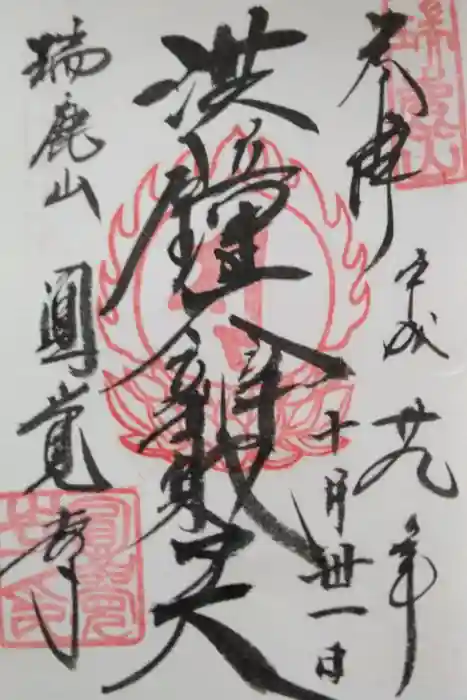 奉拝
平成廿九年
十月卅一日
洪鐘辨財天
瑞鹿山
圓覺寺